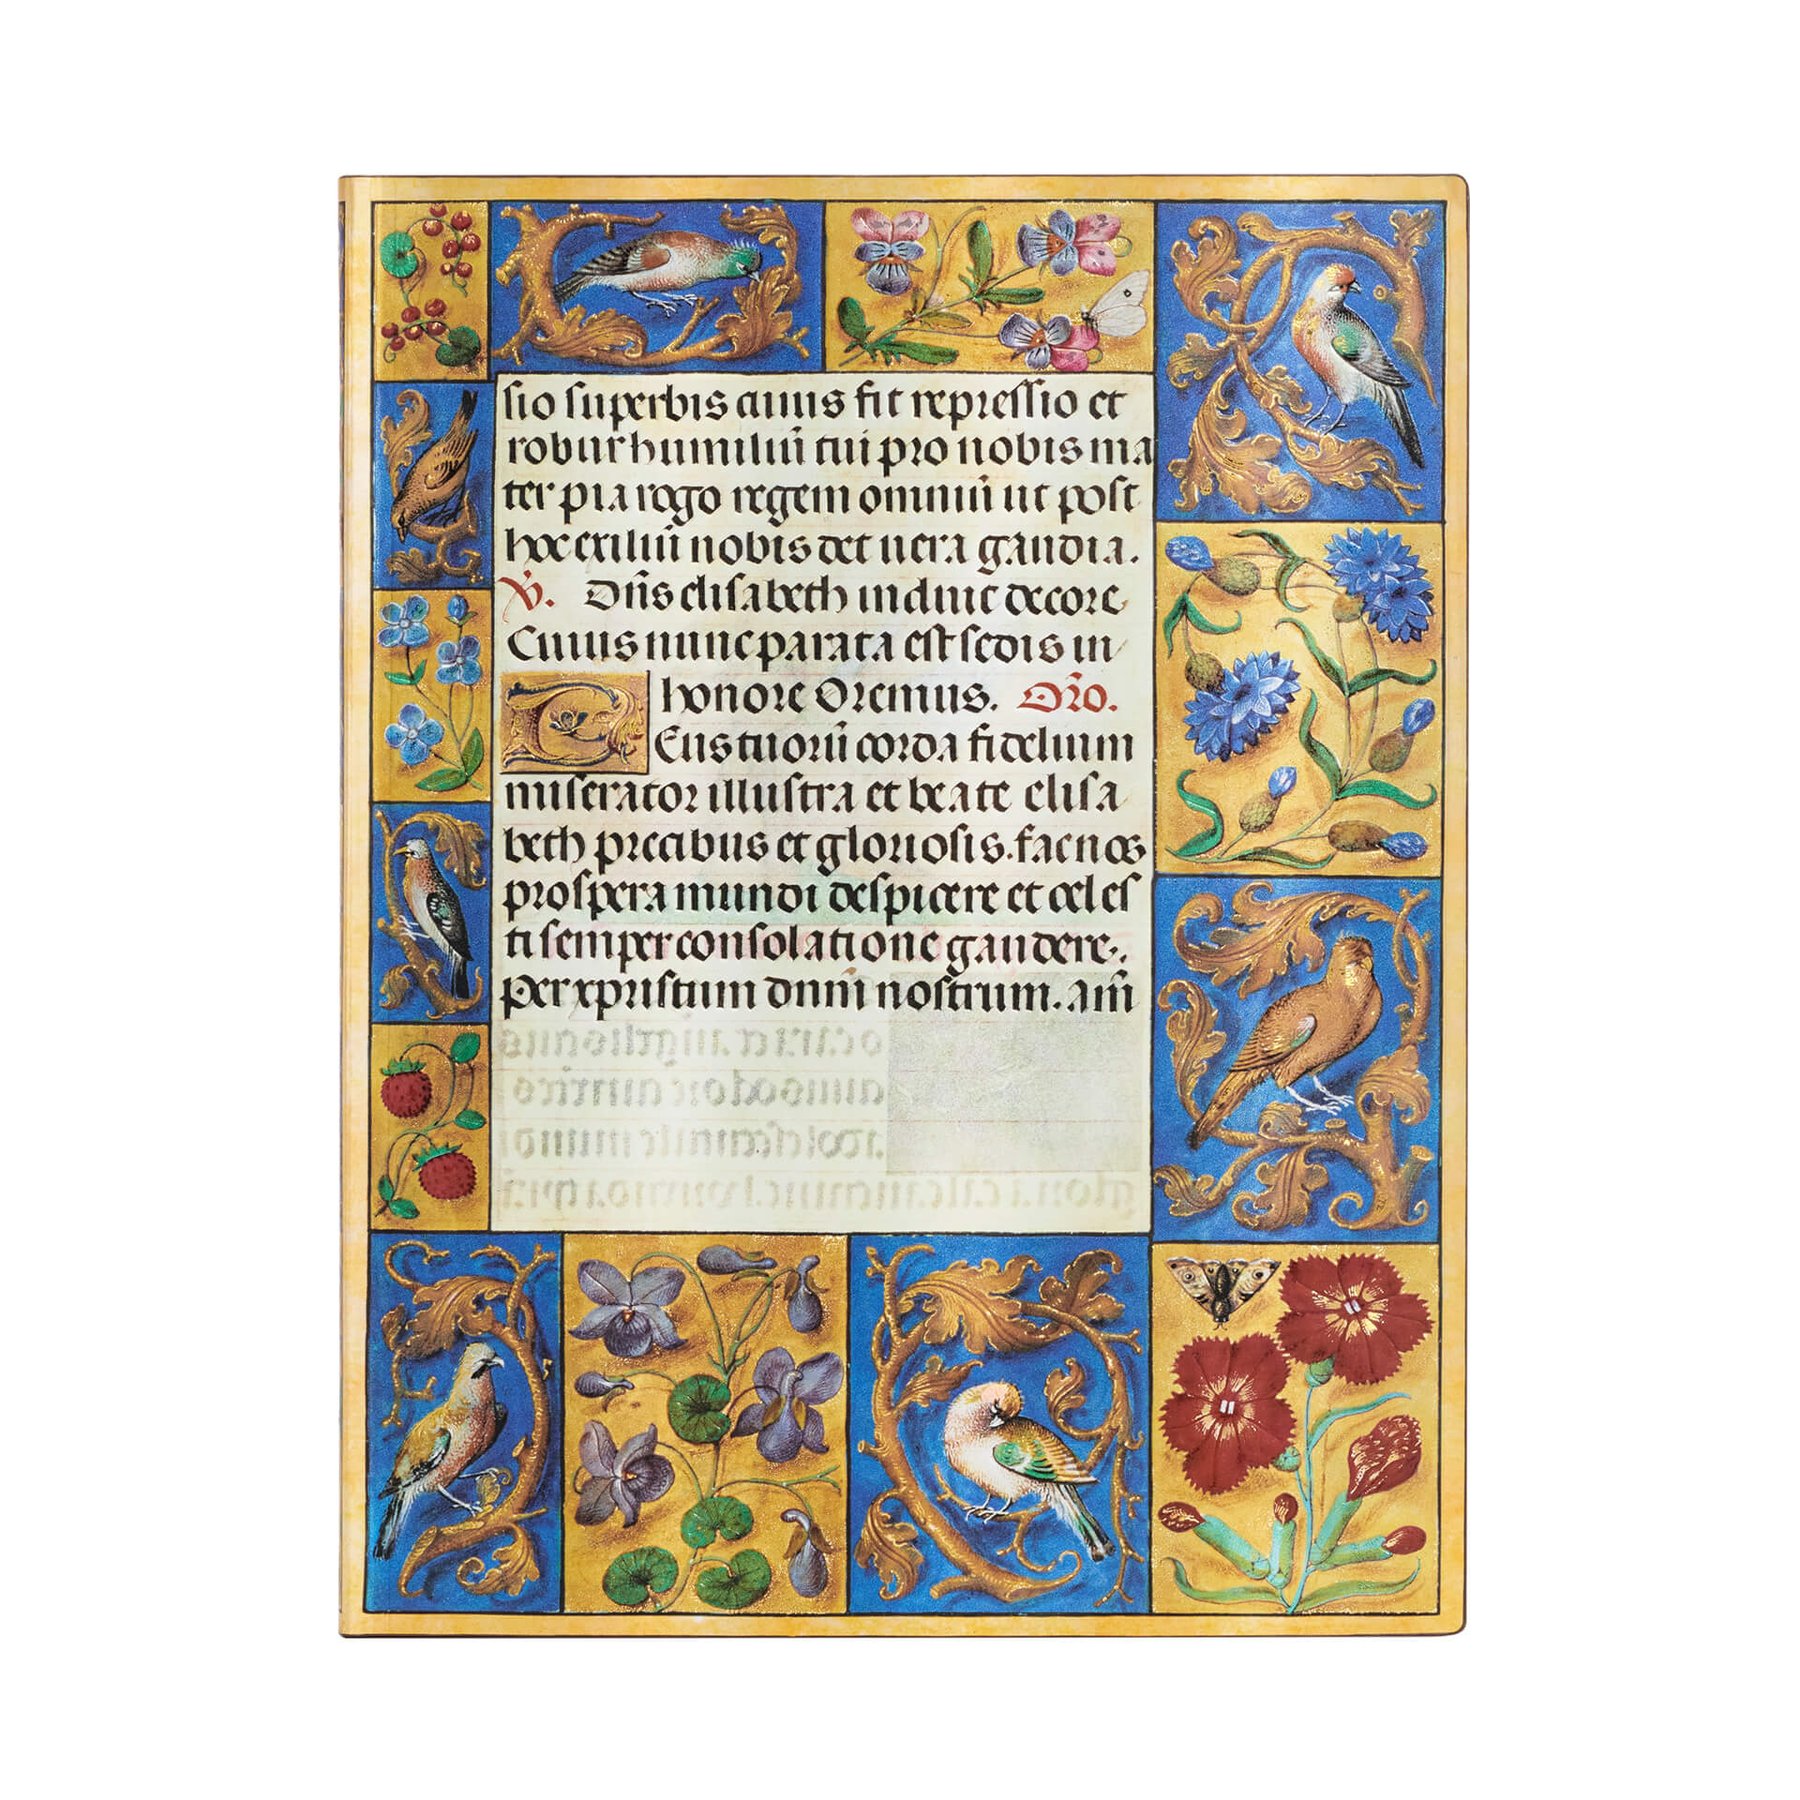 sio superbis cuius fit repressio et
robur humiliū tui pro nobis ma
ter pia rogo regem omniū ut post
hoc exiliū nobis det uera gaudia.
V̄. Dn̄s elisabeth induit decore
Cuius nunc parata est sedis in
honore Oremus. Or̄o.
Deus tuorū corda fidelium
miserator illustra et beate elisa
beth precibus et gloriosis. fac nos
prospera mundi despicere et celes
ti semper consolatione gaudere.
Per xpristum dn̄m nostrum. am̄